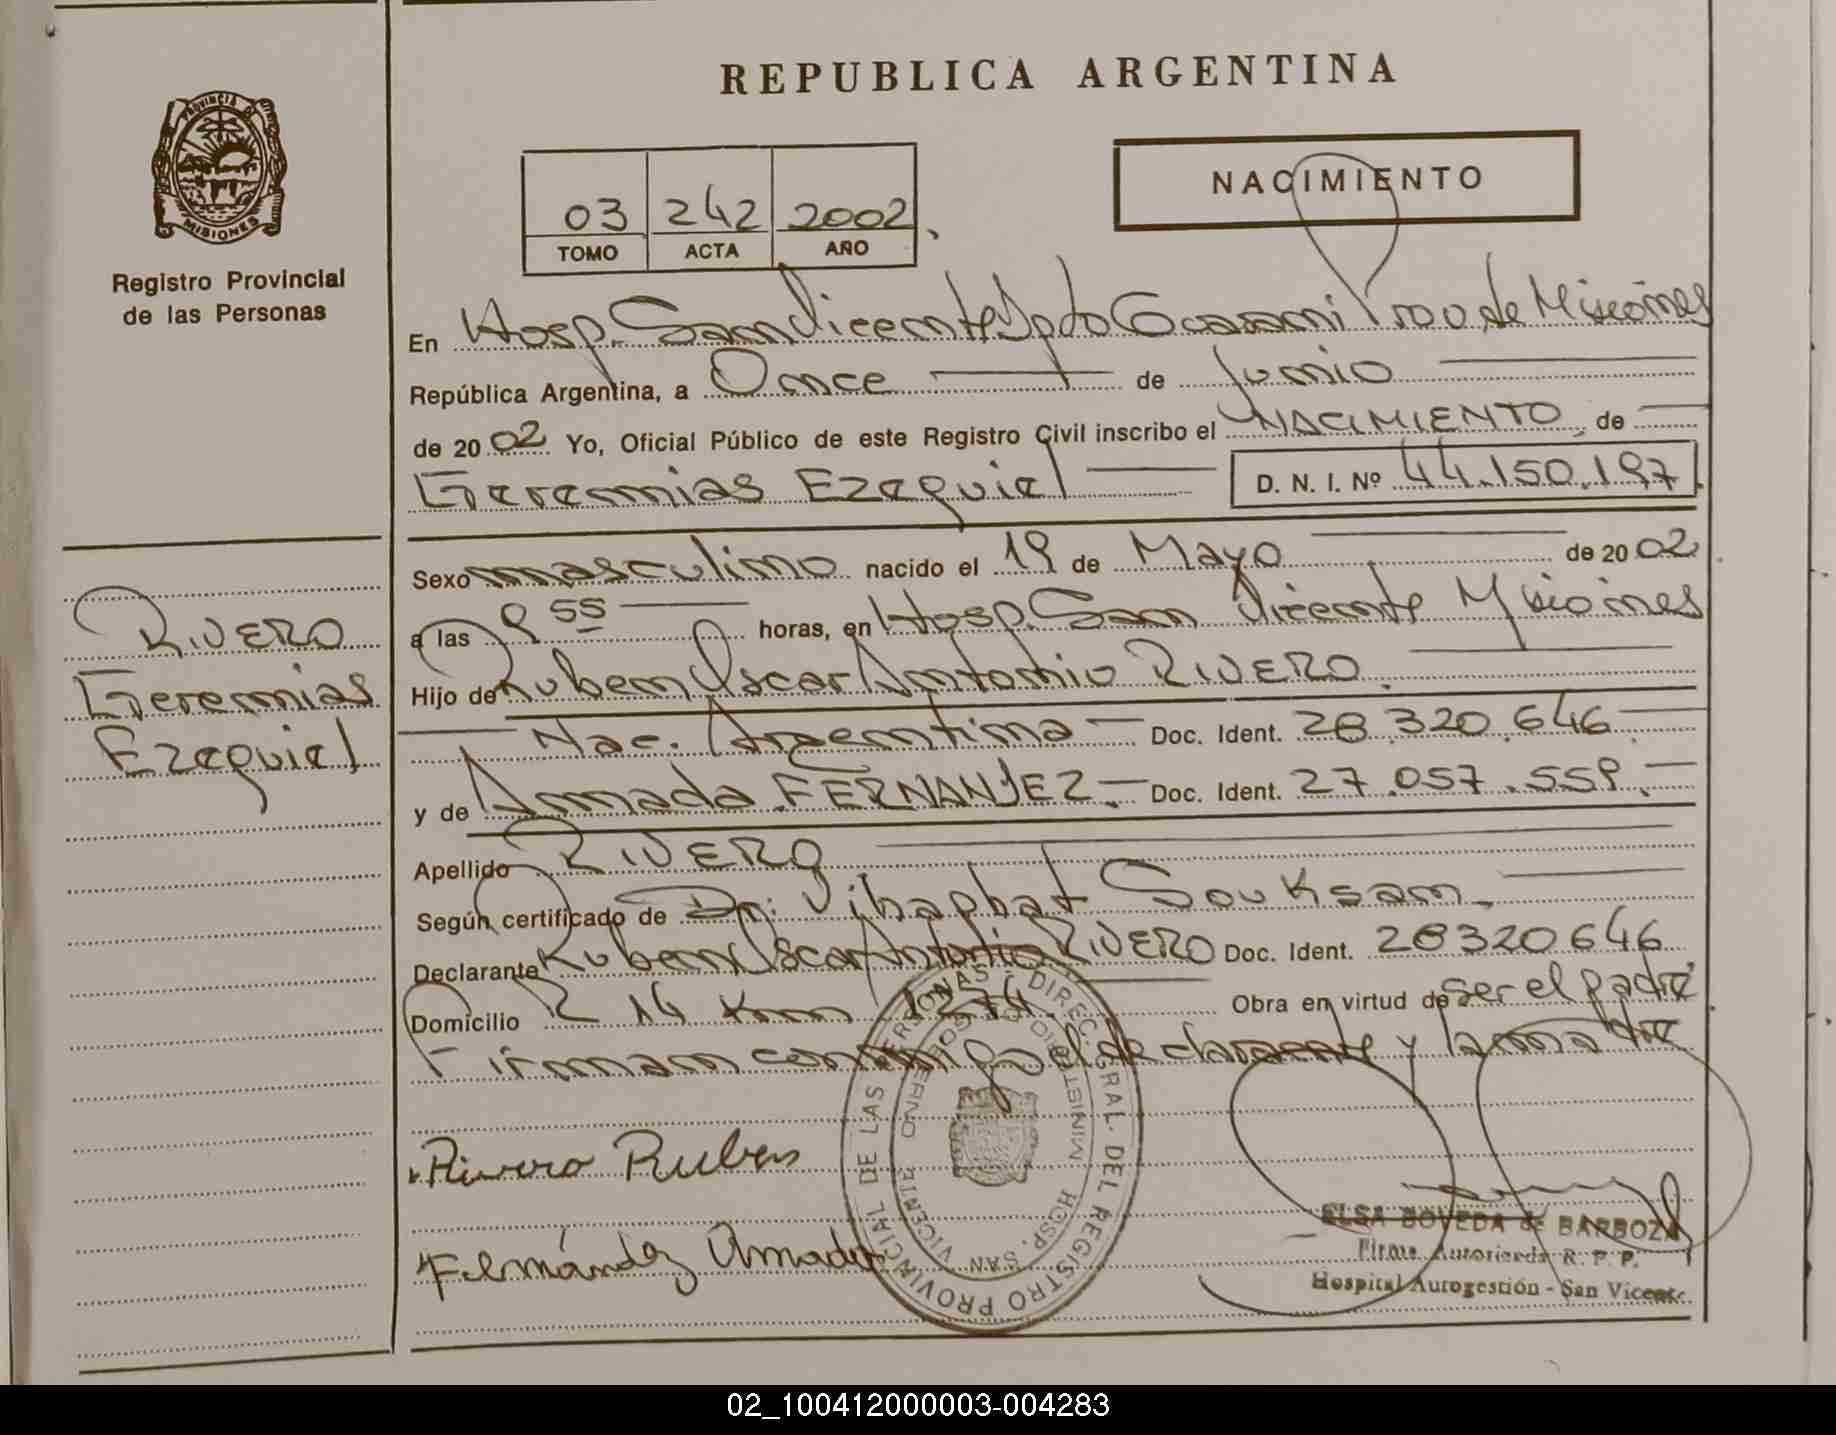 REPUBLICA ARGENTINA
PROVINCIA DE
MISIONES
Registro Provincial
de las Personas
03 242 2002
TOMO ACTA AÑO
NACIMIENTO
En Hosp. San Vicente Dpto Guarani Prov de Misiones
República Argentina, a Once de Junio
de 2002 Yo, Oficial Público de este Registro Civil inscribo el NACIMIENTO de
Geremias Ezequiel D. N. I. Nº 44.150.197
RIVERO
Geremias
Ezequiel
Sexo masculino nacido el 19 de Mayo de 2002
a las 9 55 horas, en Hosp. San Vicente Misiones
Hijo de Ruben Oscar Antonio RIVERO
Nac. Argentina Doc. Ident. 28.320.646
y de Amada FERNANDEZ Doc. Ident. 27.057.559
Apellido RIVERO
Según certificado de Dr. Vihaphat Souksam
Declarante Ruben Oscar Antonio RIVERO Doc. Ident. 28320646
Domicilio R 14 Km 1274 Obra en virtud de ser el padre
Firman conmigo el declarante y la madre
Rivero Ruben
Fernández Amada
DIREC. GRAL. DEL REGISTRO PROVINCIAL DE LAS PERSONAS
MINISTERIO DE GOBIERNO
HOSP. SAN VICENTE
ELSA BOVEDA de BARBOZA
Firma Autorizada R. P. P.
Hospital Autogestión - San Vicente
02_100412000003-004283